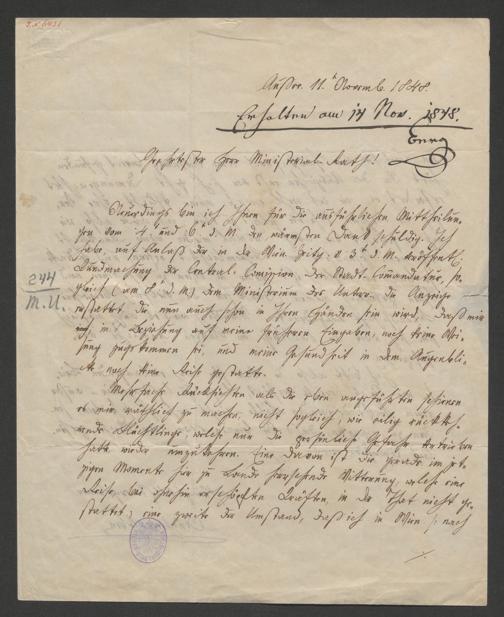 Aussee 11. Novemb. 1848.
Erhalten am 14 Nov. 1848.
Hochgeehrtester Herr Ministerial-Rath!
Neuerdings bin ich Ihnen für die ausführlichen Mittheilun-
gen vom 4. und 6. d. M. den wärmsten Dank schuldig. Ich
habe auf Anlaß der in der Wien. Zeitg. v. 3. d. M. veröffentl.
Kundmachung der Central-Comission der Stadt-Commandantur, so-
gleich (am 8. d. M.) dem Ministerium des Unter. die Anzeige
erstattet, die nun auch schon in Ihren Händen sein wird, daß mir
in Beziehung auf meine früheren Eingaben, noch keine Wei-
sung zugekommen sei, und meine Gesundheit in dem Augenbli-
cke noch keine Reise gestatte.
244
M. U.
Mehrfache Rücksichten als die eben angeführten schienen
es mir räthlich zu machen, nicht sogleich, wie eilig rückkeh-
rende Flüchtlinge, welche nur die persönliche Gefahr vertrieben
hatte wieder umzukehren. Eine davon ist die gerade im jet-
zigen Momente hier zu Lande herrschende Witterung, welche eine
Reise bei ohnehin erschöpften Kräften, in der That nicht ge-
stattet; eine zweite der Umstand, daß ich in Wien, nach